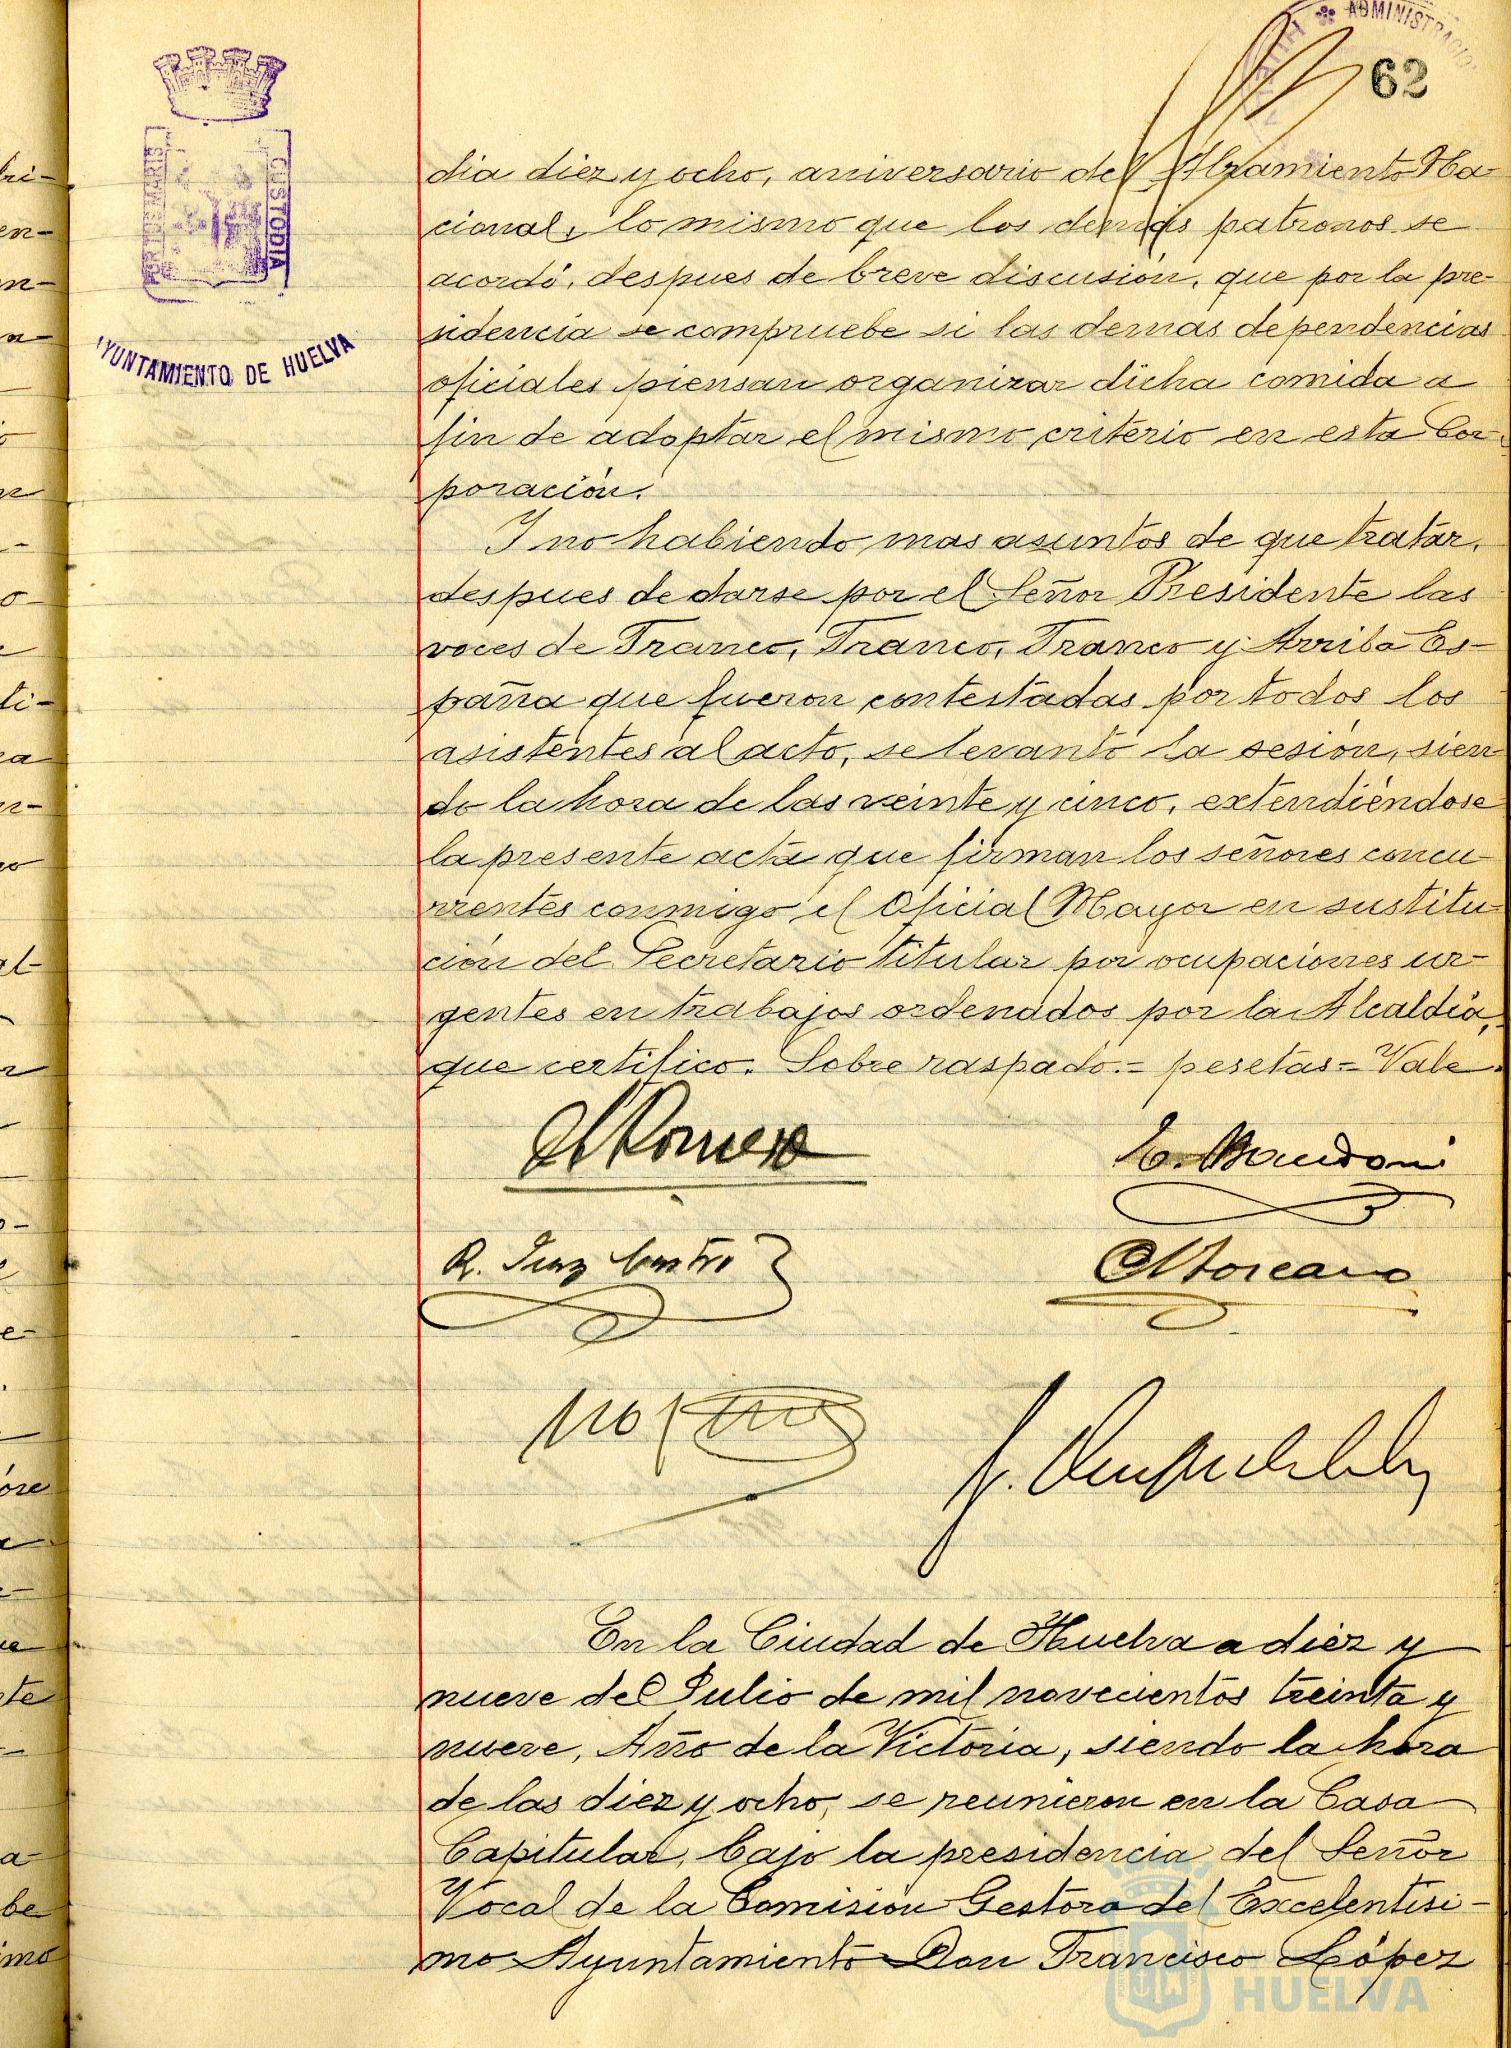 ADMINISTRACIO
HUELVA
62
PORTUS MARIS
CUSTODIA
AYUNTAMIENTO DE HUELVA
dia diez y ocho, aniversario del Alzamiento Na-
cional, lo mismo que los demás patronos se
acordó, despues de breve discusión, que por la pre-
sidencia se compruebe si las demas dependencias
oficiales piensan organizar dicha comida a
fin de adoptar el mismo criterio en esta Cor-
poración.
Y no habiendo mas asuntos de que tratar,
despues de darse por el Señor Presidente las
voces de Franco, Franco, Franco y Arriba Es-
paña que fueron contestadas por todos los
asistentes al acto, se levantó la sesión, sien-
do la hora de las veinte y cinco, extendiéndose
la presente acta que firman los señores concu-
rrentes conmigo el Oficial Mayor en sustitu-
ción del Secretario titular por ocupaciones ur-
gentes en trabajos ordenados por la Alcaldía,
que certifico. Sobre raspado.= pesetas= Vale.
Romero
E. Mandoni
R. Diaz Castro
Moreano
En la Ciudad de Huelva a diez y
nueve de Julio de mil novecientos treinta y
nueve, Año de la Victoria, siendo la hora
de las diez y ocho, se reunieron en la Casa
Capitular, bajo la presidencia del Señor
Vocal de la Comision Gestora del Excelentisi-
mo Ayuntamiento Don Francisco López
HUELVA